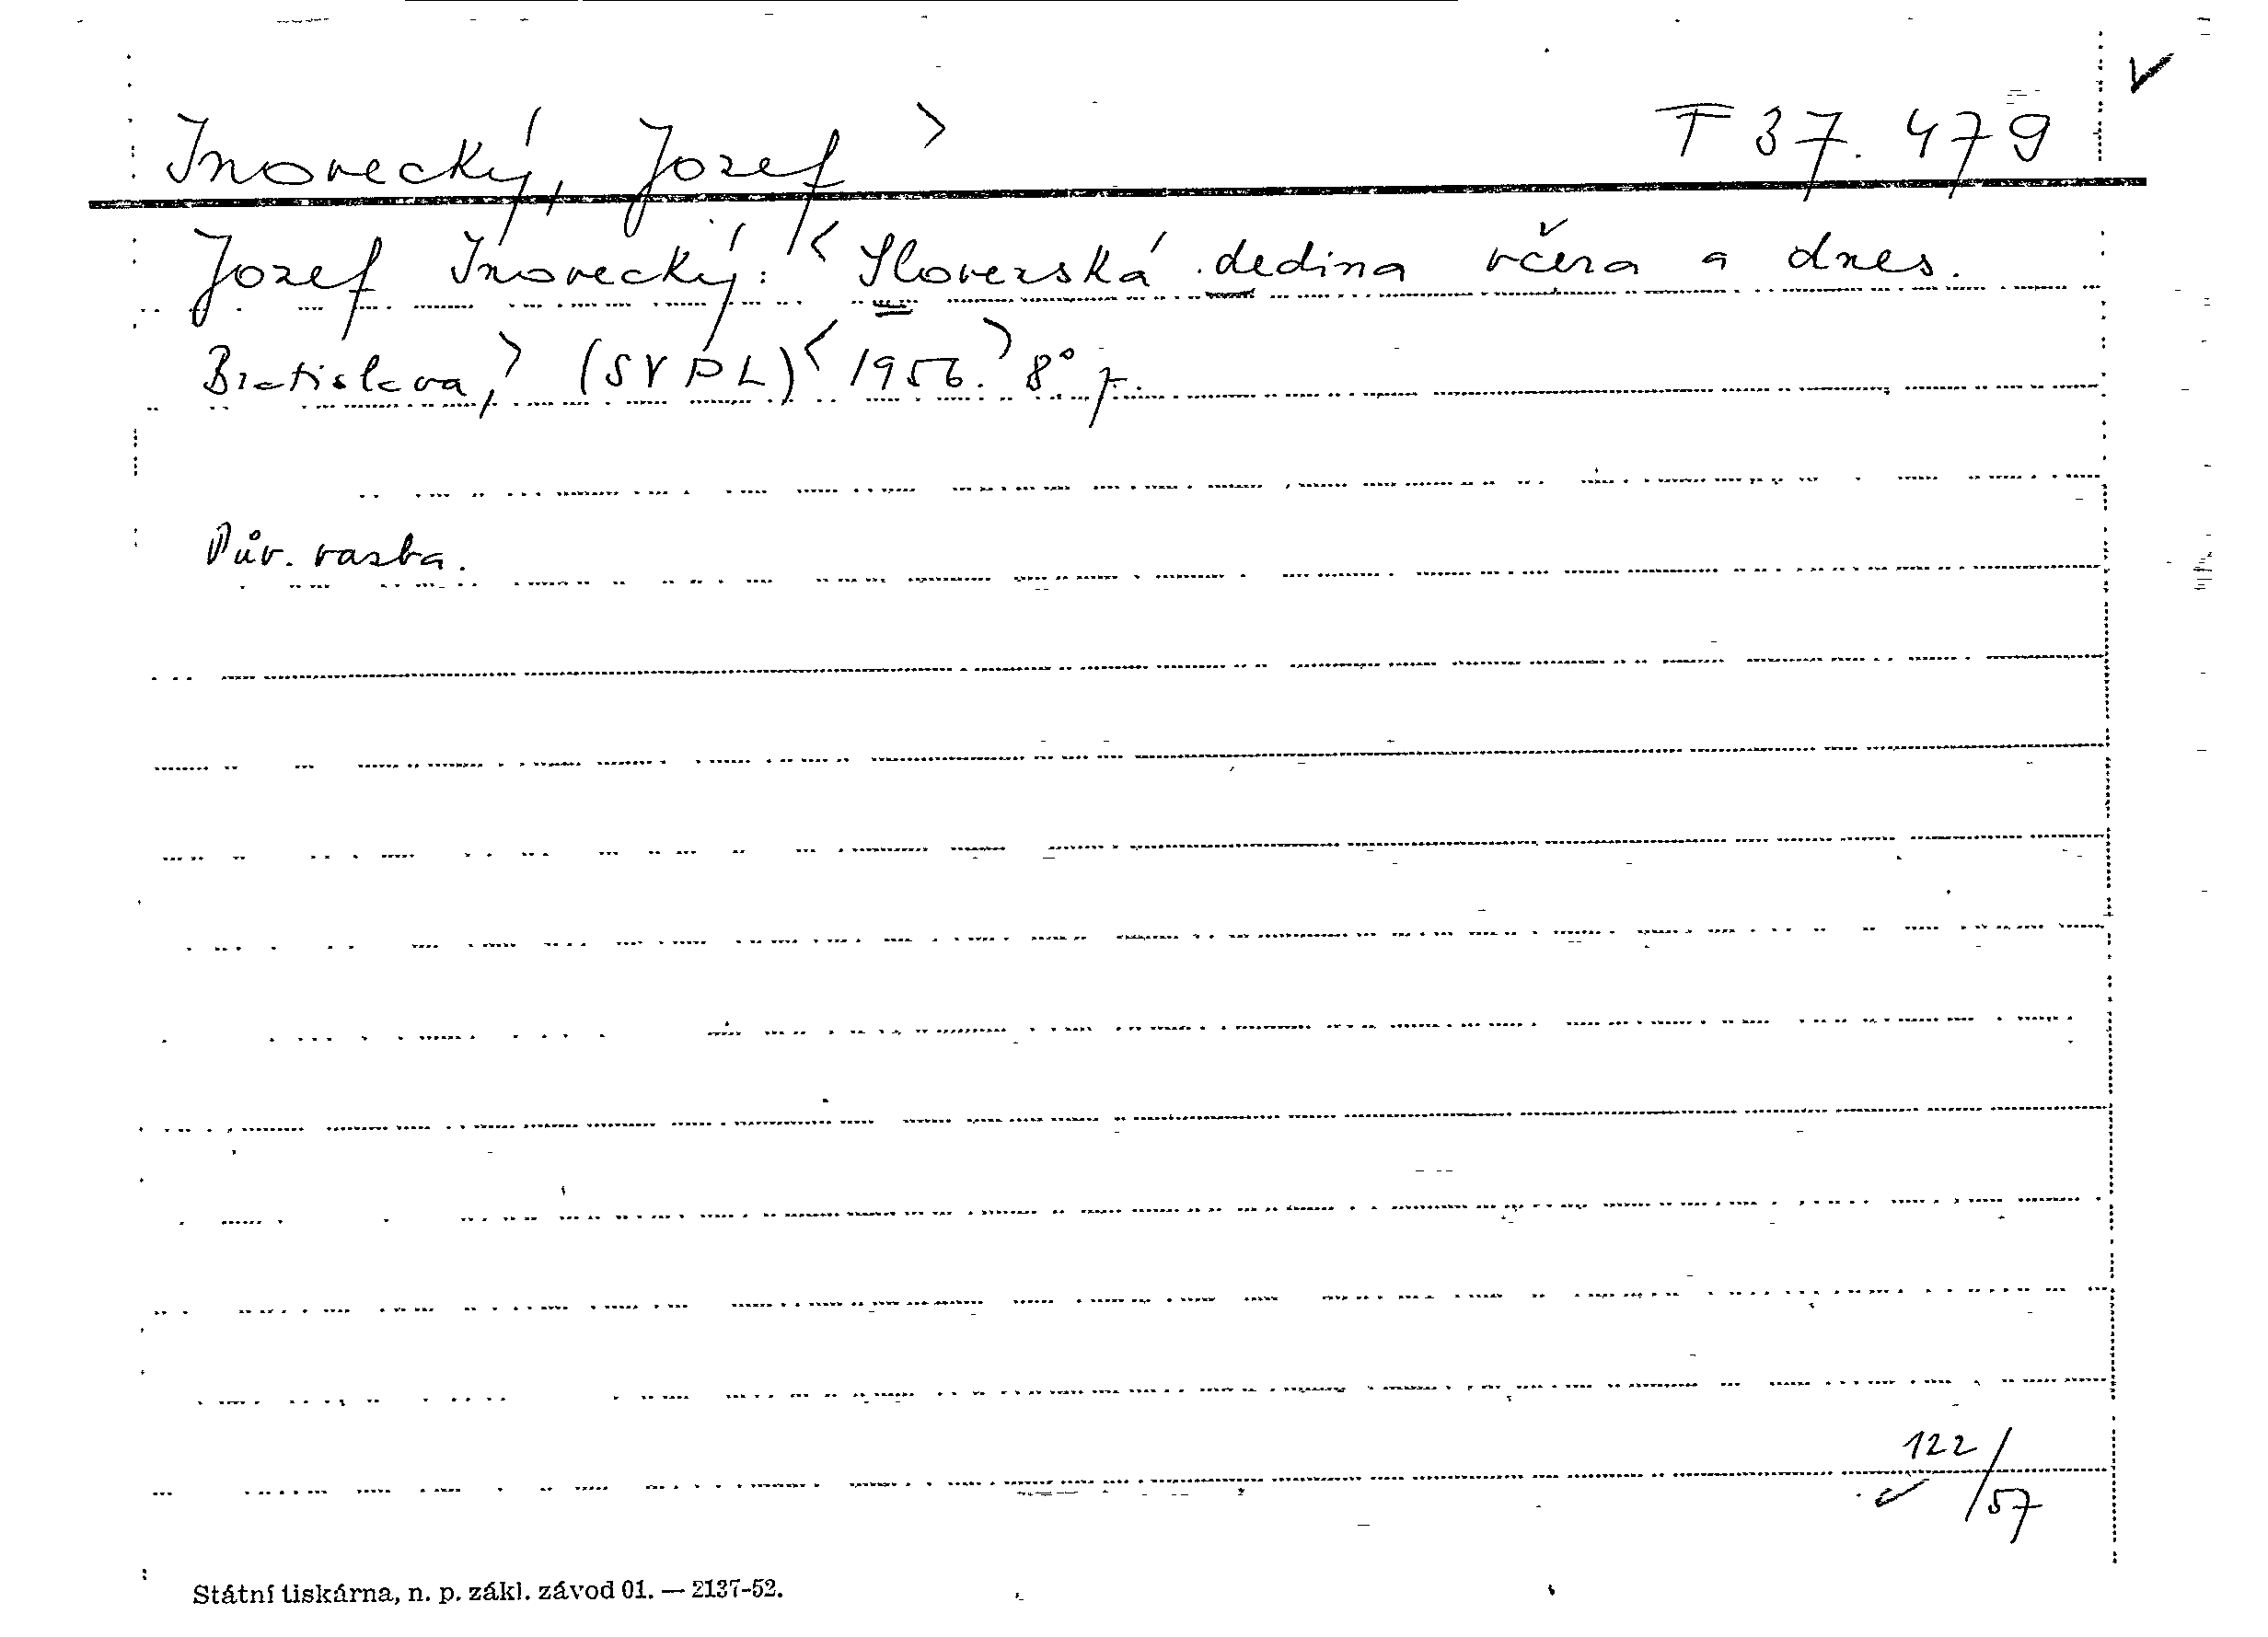 Inovecký, Jozef > T 37.479
Jozef Inovecký: < Slovenská dedina včera a dnes.
Bratislava, > (SVPL) < 1956. > 8°
Pův. vazba.
122/57
Státní tiskárna, n. p. zákl. závod 01. — 2137-52.